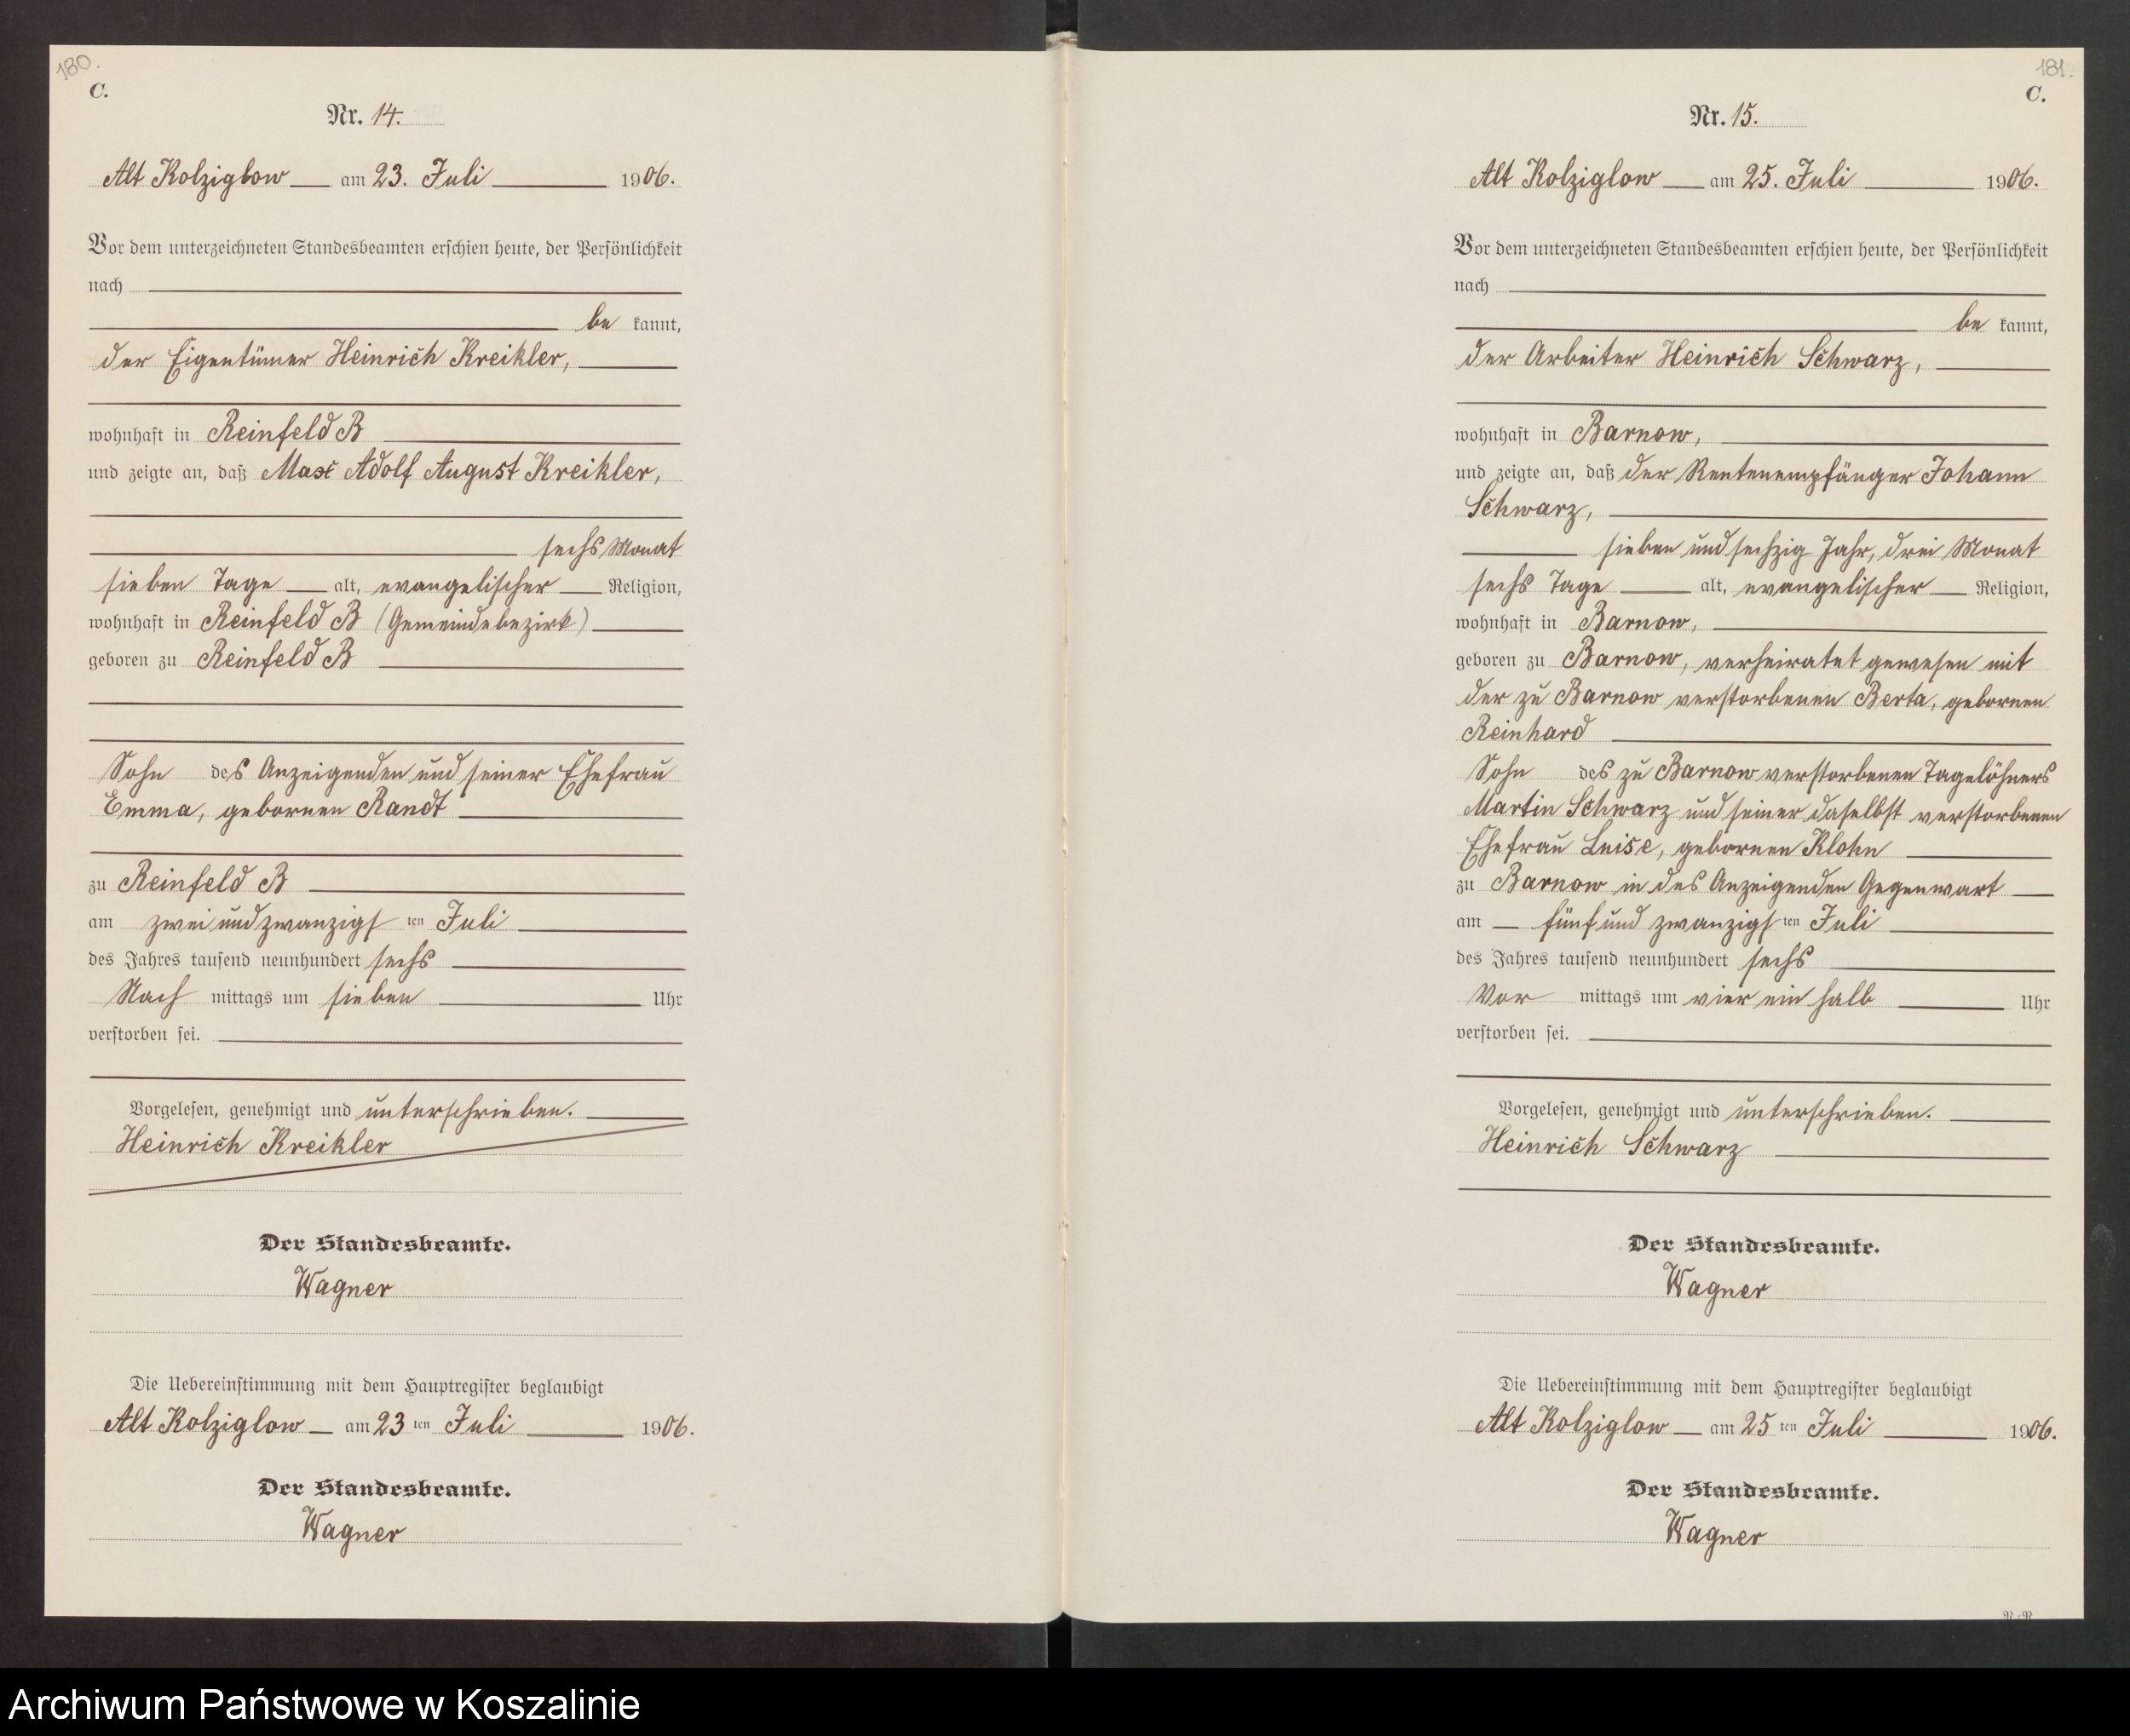 180.
C.
Nr. 14.
Alt Kolziglow am 23. Juli 1906.
Vor dem unterzeichneten Standesbeamten erschien heute, der Persönlichkeit
nach
be kannt,
der Eigentümer Heinrich Kreikler,
wohnhaft in Reinfeld B
und zeigte an, daß Max Adolf August Kreikler,
sechs Monat
sieben Tage alt, evangelischer Religion,
wohnhaft in Reinfeld B (Gemeindebezirk)
geboren zu Reinfeld B
Sohn des Anzeigenden und seiner Ehefrau
Emma, gebornen Randt
zu Reinfeld B
am zwei und zwanzigs ten Juli
des Jahres tausend neunhundert sechs
Nach mittags um sieben Uhr
verstorben sei.
Vorgelesen, genehmigt und unterschrieben.
Heinrich Kreikler
Der Standesbeamte.
Wagner
Die Uebereinstimmung mit dem Hauptregister beglaubigt
Alt Kolziglow am 23 ten Juli 1906.
Der Standesbeamte.
Wagner
181.
C.
Nr. 15.
Alt Kolziglow am 25. Juli 1906.
Vor dem unterzeichneten Standesbeamten erschien heute, der Persönlichkeit
nach
be kannt,
der Arbeiter Heinrich Schwarz,
wohnhaft in Barnow,
und zeigte an, daß der Rentenempfänger Johann
Schwarz,
sieben und sechzig Jahr, drei Monat
sechs Tage alt, evangelischer Religion,
wohnhaft in Barnow,
geboren zu Barnow, verheiratet gewesen mit
der zu Barnow verstorbenen Berta, gebornen
Reinhard
Sohn des zu Barnow verstorbenen Tagelöhners
Martin Schwarz und seiner daselbst verstorbenen
Ehefrau Luise, gebornen Klohn
zu Barnow in des Anzeigenden Gegenwart
am fünf und zwanzigs ten Juli
des Jahres tausend neunhundert sechs
Vor mittags um vier ein halb Uhr
verstorben sei.
Vorgelesen, genehmigt und unterschrieben.
Heinrich Schwarz
Der Standesbeamte.
Wagner
Die Uebereinstimmung mit dem Hauptregister beglaubigt
Alt Kolziglow am 25 ten Juli 1906.
Der Standesbeamte.
Wagner
Archiwum Państwowe w Koszalinie